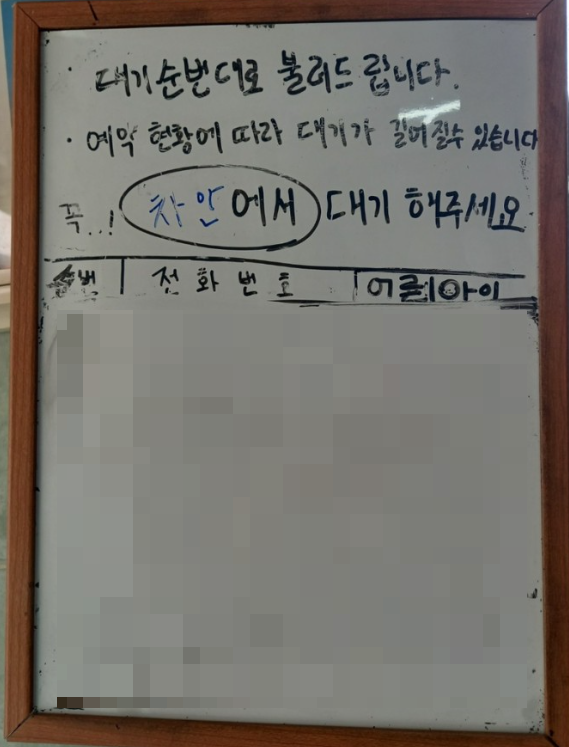 · 대기순번대로 불러드립니다.
· 예약 현황에 따라 대기가 길어질수 있습니다
꼭..! 차안에서 대기 해주세요
순번 전화번호 어른|아이